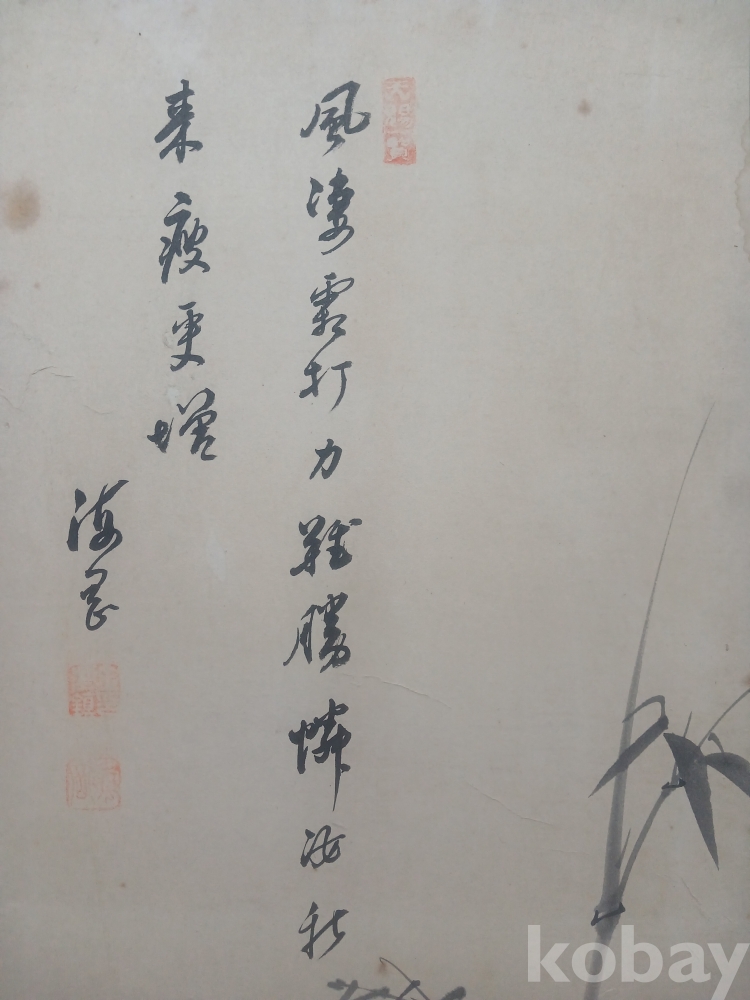 風凄霜打力難勝憐汝秋
来瘦更增
海岡
kobay